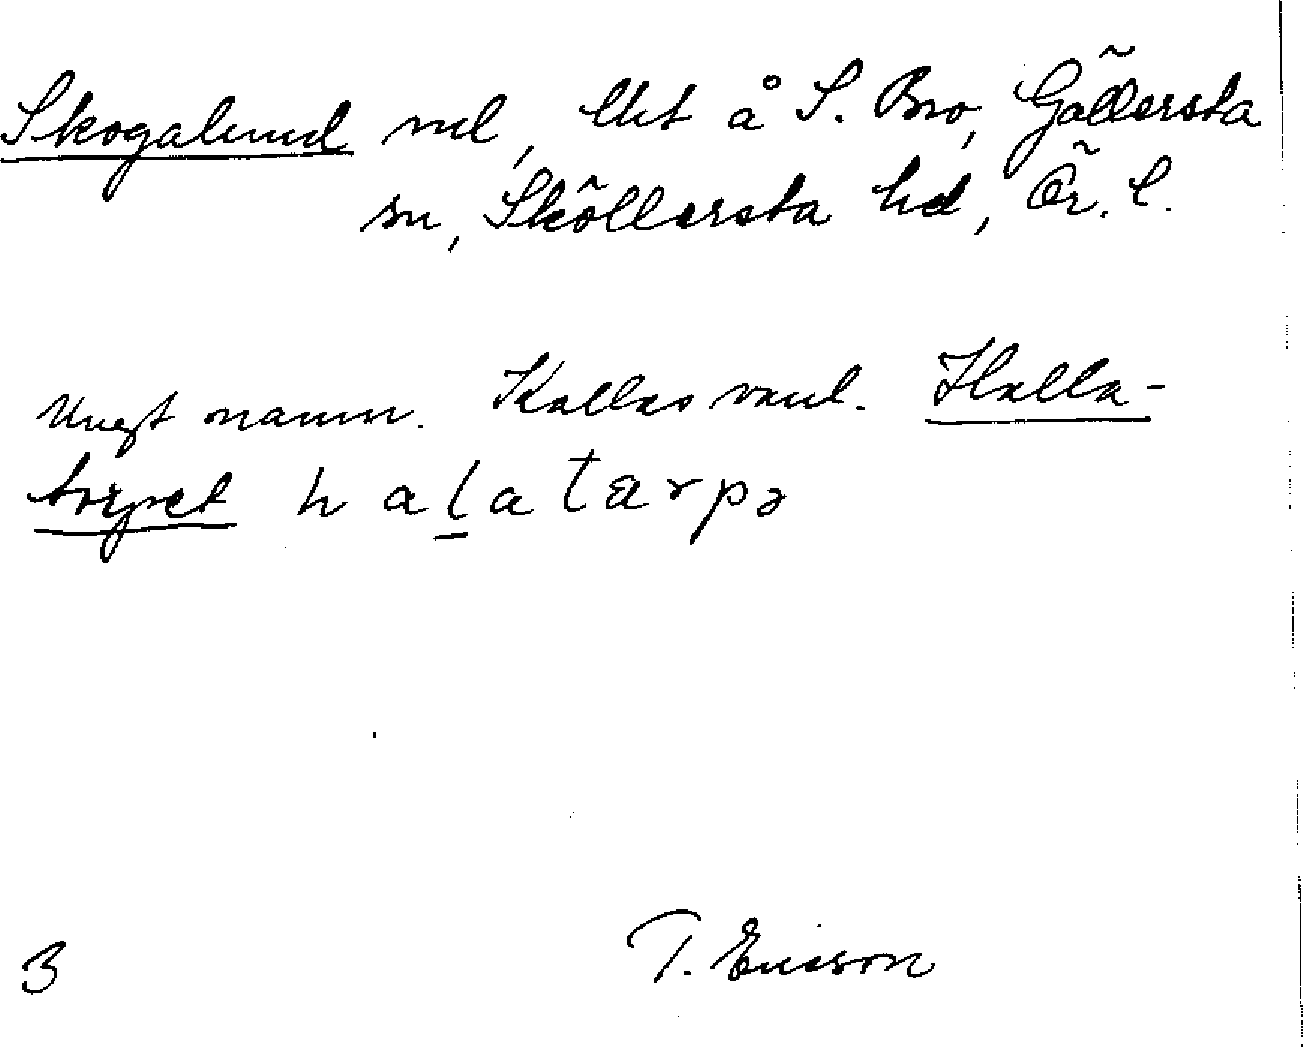 Skogalund vid, lht å S. Bro, Gällersta
sn, Sköllersta hd, Ör. l.
Ungt namn. Kallas vanl. Halla-
torpet halatærpə
3 T. Ericson